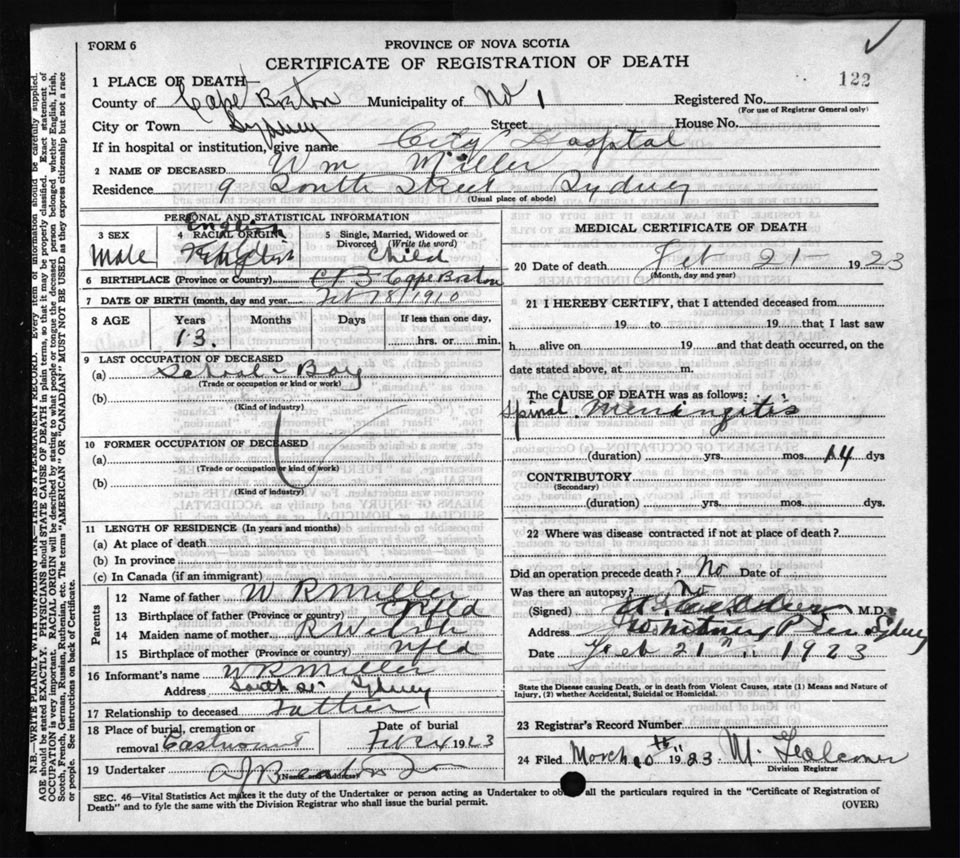 FORM 6
PROVINCE OF NOVA SCOTIA
CERTIFICATE OF REGISTRATION OF DEATH
122
1 PLACE OF DEATH—
County of Cape Breton Municipality of No 1 Registered No.
(For use of Registrar General only)
City or Town Sydney Street House No.
If in hospital or institution, give name City Hospital
2 NAME OF DECEASED Wm Miller
Residence 9 South Street Sydney
(Usual place of abode)
PERSONAL AND STATISTICAL INFORMATION
3 SEX
Male
4 RACIAL ORIGIN
English
English
5 Single, Married, Widowed or Divorced (Write the word)
Child
6 BIRTHPLACE (Province or Country) C B Cape Breton
7 DATE OF BIRTH (month, day and year) Feb 18/1910
8 AGE Years Months Days If less than one day,
13. hrs. or min.
9 LAST OCCUPATION OF DECEASED
(a) School-Boy
(Trade or occupation or kind or work)
(b)
(Kind of industry)
10 FORMER OCCUPATION OF DECEASED
(a)
(Trade or occupation or kind of work)
(b)
(Kind of industry)
11 LENGTH OF RESIDENCE (In years and months)
(a) At place of death
(b) In province
(c) In Canada (if an immigrant)
Parents
12 Name of father W R Miller
13 Birthplace of father (Province or country) Nfld
14 Maiden name of mother R Welsh
15 Birthplace of mother (Province or country) Nfld
16 Informant's name W R Miller
Address South St Sydney
17 Relationship to deceased Father
18 Place of burial, cremation or removal Eastmount
Date of burial
Feb 24 1923
19 Undertaker
(Name and Address)
MEDICAL CERTIFICATE OF DEATH
20 Date of death Feb 21 1923
(Month, day and year)
21 I HEREBY CERTIFY, that I attended deceased from
19 to 19 that I last saw
h alive on 19 and that death occurred, on the
date stated above, at m.
The CAUSE OF DEATH was as follows:
Spinal Meningitis
(duration) yrs. mos. 14 dys
CONTRIBUTORY
(Secondary)
(duration) yrs. mos. dys.
22 Where was disease contracted if not at place of death?
Did an operation precede death? No Date of
Was there an autopsy? No
(Signed) M.D.
Address Whitney Pier Sydney
Date Feb 21 " 1923
State the Disease causing Death, or in death from Violent Causes, state (1) Means and Nature of
Injury, (2) whether Accidental, Suicidal or Homicidal.
23 Registrar's Record Number
24 Filed March 10th "23 M.
Division Registrar
SEC. 46—Vital Statistics Act makes it the duty of the Undertaker or person acting as Undertaker to all the particulars required in the "Certificate of Registration of
Death" and to fyle the same with the Division Registrar who shall issue the burial permit.
(OVER)
N.B.—WRITE PLAINLY WITH UNFADING INK—THIS IS A PERMANENT RECORD. Every item of information should be carefully supplied.
AGE should be stated EXACTLY. PHYSICIANS should STATE CAUSE OF DEATH in plain terms, so that it may be properly classified. Exact statement of
OCCUPATION is very important. RACIAL ORIGIN will be described by stating to what people or tongue the deceased person belonged whether English, Irish,
Scotch, French, German, Russian, Ruthenian, etc. The terms "AMERICAN" OR "CANADIAN" MUST NOT BE USED as they express citizenship but not a race
or people. See instructions on back of Certificate.